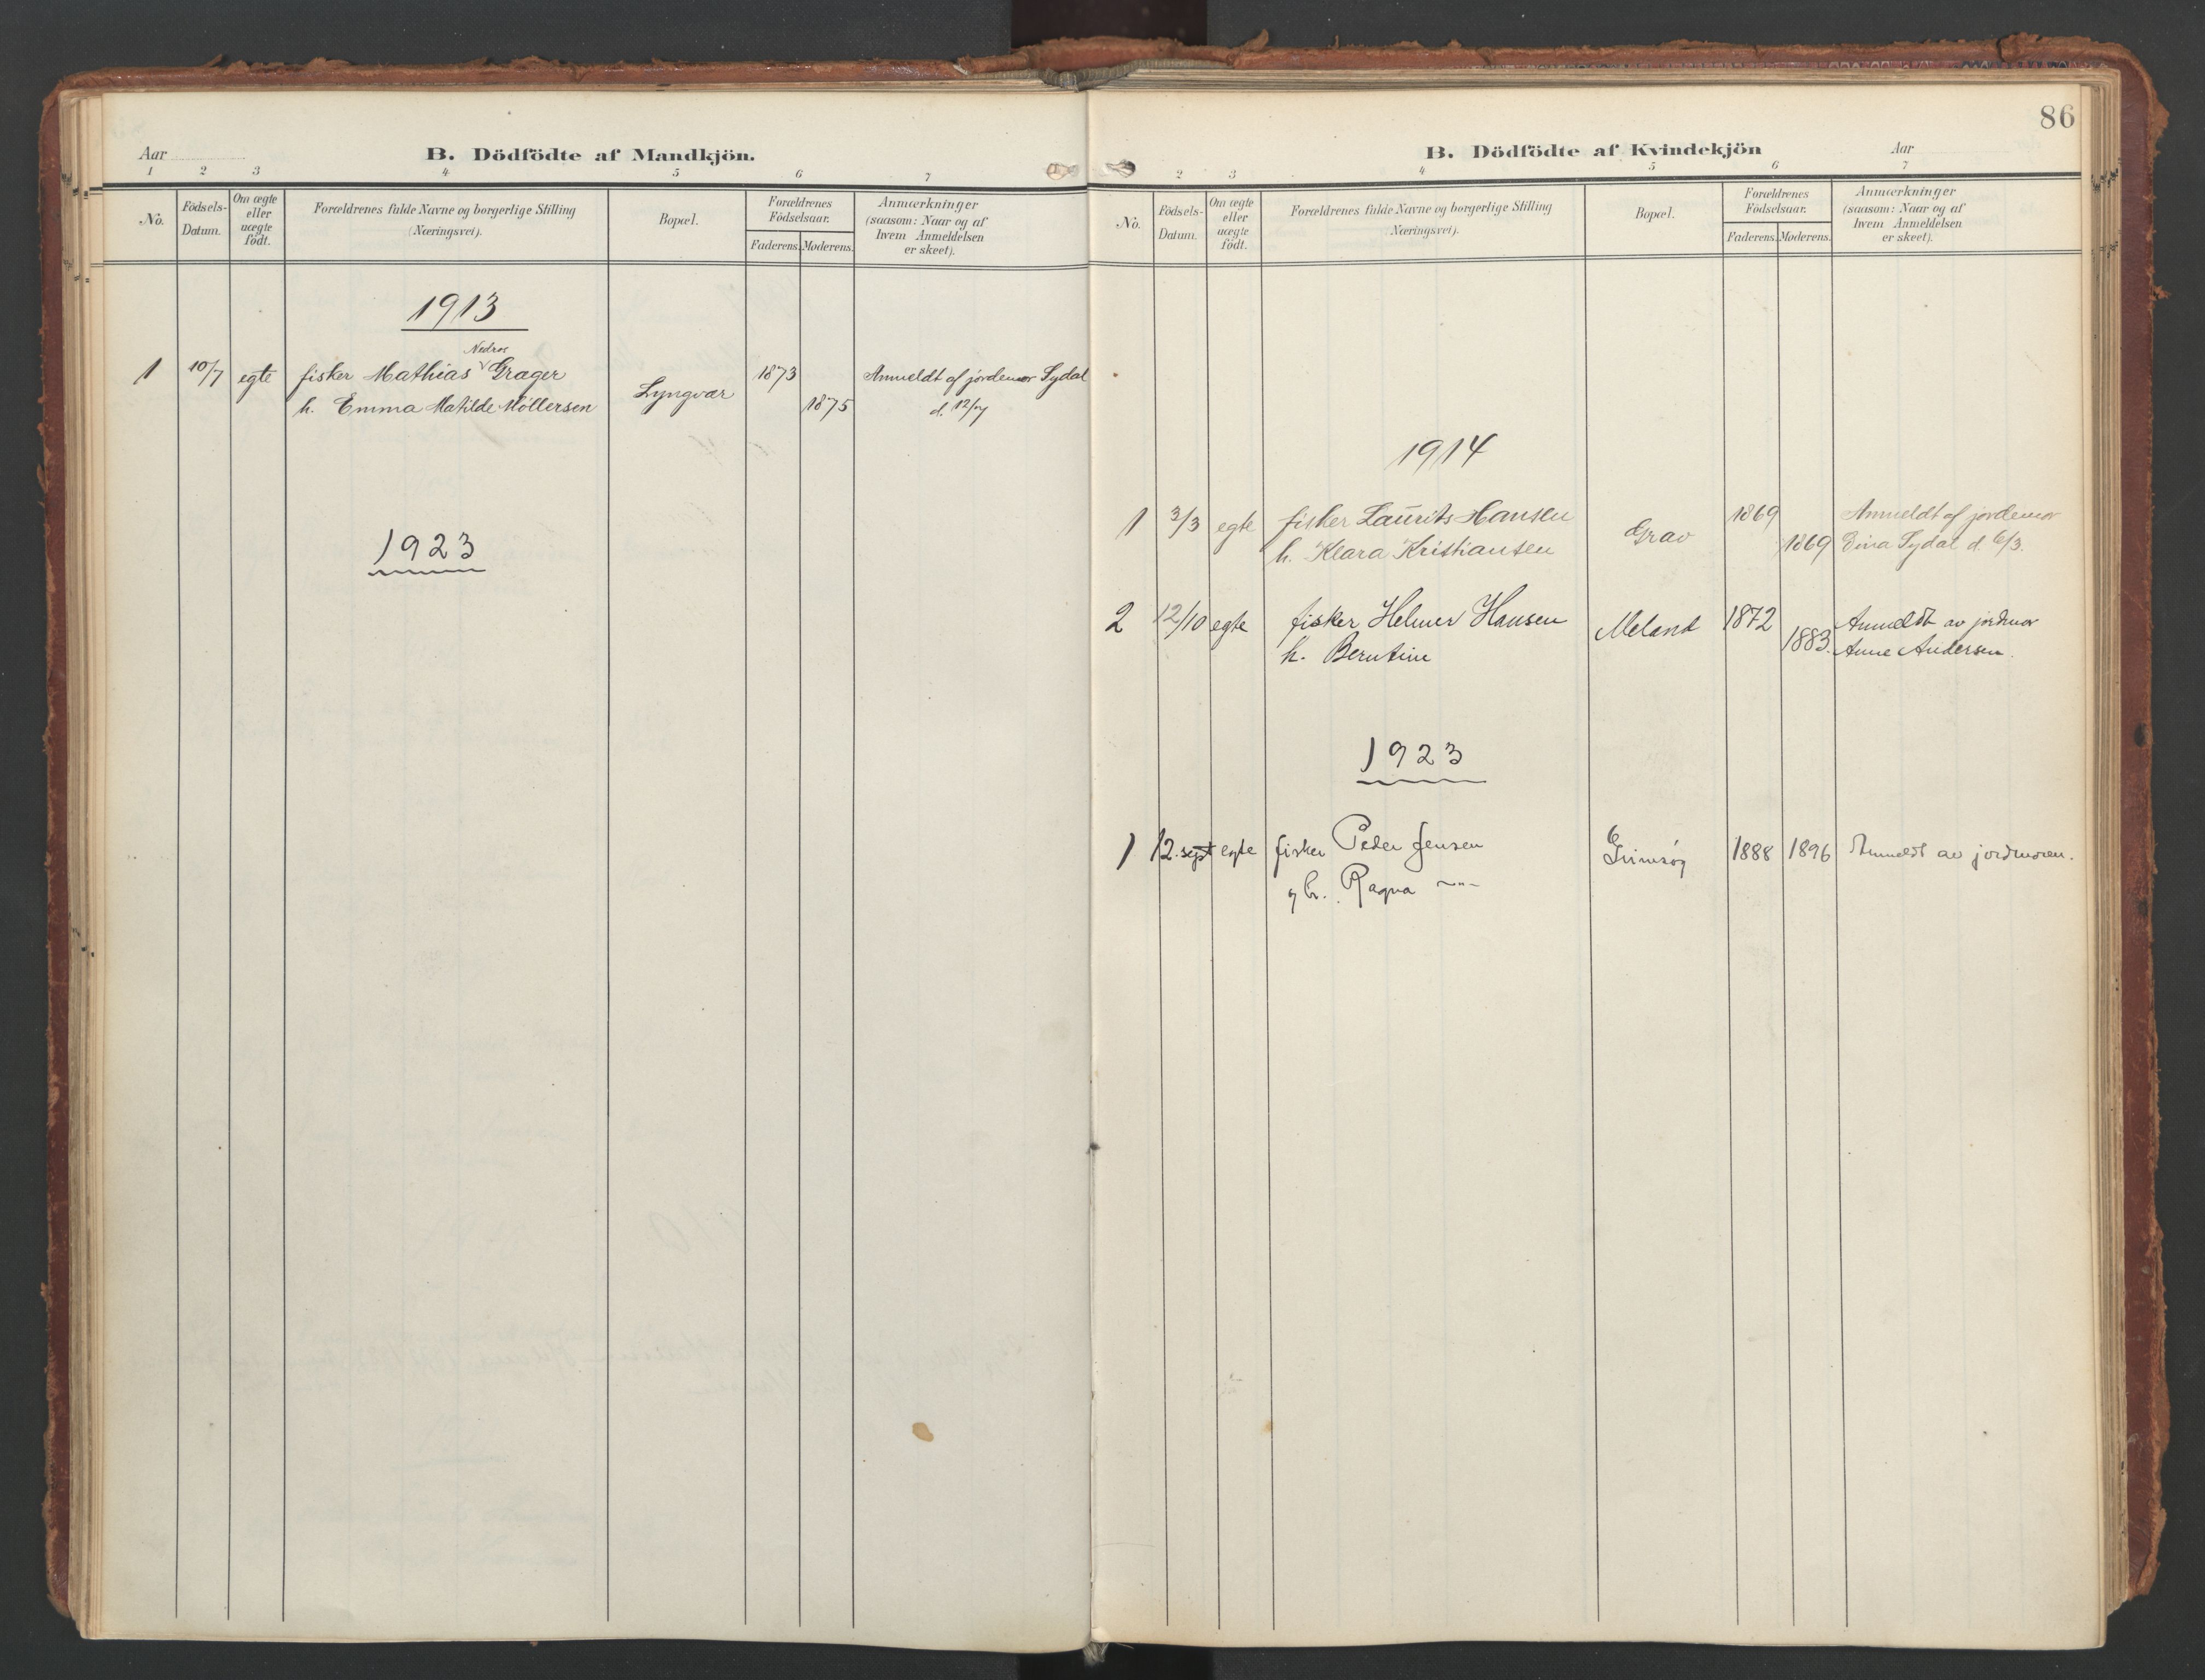 Aar
B. Dödfödte af Mandkjön.
1 2 3 4 5 6 7
No.
Födsels-
Datum.
Om ægte
eller
uægte
födt.
Forældrenes fulde Navne og borgerlige Stilling
(Næringsvei).
Bopæl.
Forældrenes
Födselsaar.
Faderens. Moderens.
Anmærkninger
(saasom: Naar og af
hvem Anmeldelsen
er skeet).
1913
Nedros
1 10/7 egte fisker Mathias v Grager Lyngvær 1873 Anmeldt af jordemor Sydal
h. Emma Matilde Möllersen 1875 d. 12/7
1923
86
B. Dödfödte af Kvindekjön
Aar
2 3 4 5 6 7
No.
Födsels-
Datum.
Om ægte
eller
uægte
födt.
Forældrenes fulde Navne og borgerlige Stilling
(Næringsvei).
Bopæl.
Forældrenes
Födselsaar.
Faderens. Moderens.
Anmærkninger
(saasom: Naar og af
hvem Anmeldelsen
er skeet).
1914
1 3/3 egte fisker Laurits Hansen Grav 1869 Anmeldt af jordemor
h. Klara Kristiansen 1869 Sydal d. 6/3.
2 12/10 egte fisker Helmer Hansen Meland 1872 Anmeldt av jordmor
h. Berntine 1883. Anne Andersen.
1923
1 12. sept egte fisker Peder Jensen Grimsøy 1888 1896 Anmeldt av jordmoren.
og h. Ragna —"—